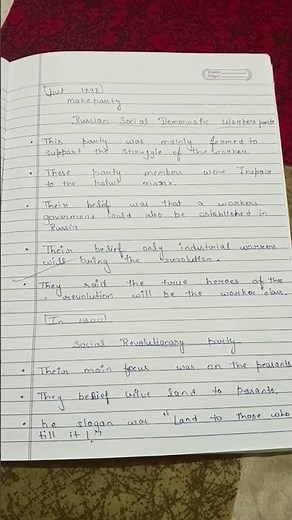 but 1898
make party
Russian Social Democratic Workers party
• This party was mainly formed to
support the struggle of the worker.
• These party members wore Inspair
to the
• Their belief was that a workers
government could also be established in
Russia
• Their belief only industrial workers
will bring the revolution.
• They said the true heroes of the
revolution will be the worker class.
In 1900
Social Revolutionary party
• Their main focus was on the peasants
• They belief give land to
• he slogan was "Land to those who
till it!"